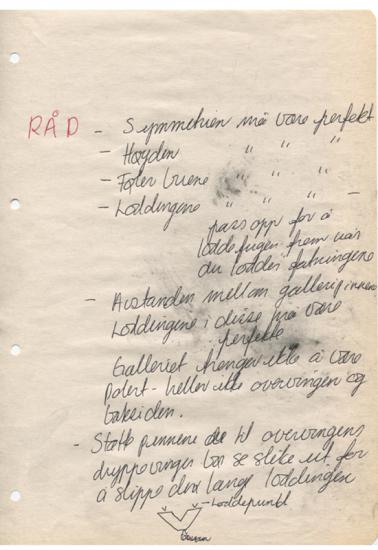 RÅD - Symmetrien må være perfekt
- Høyden " " "
- Foten buene " " "
- Loddingene " " " -
pass opp for å
lodde fugen frem når
du lodder fatningene
- Avstanden mellom galleripinnene
Loddingene i disse må være
perfekte
Galleriet trenger ikke å være
polert - heller ikke overvingen og
baksiden.
- Støtt pinnene til overvingens
dryppevinger bør se slike ut for
å slippe den lange loddingen
Loddepunkt